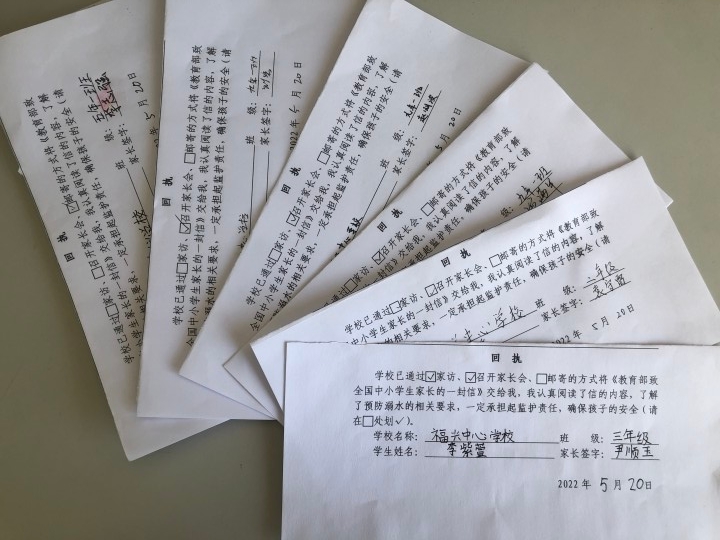 回 执
学校已通过☑家访、☑召开家长会、□邮寄的方式将《教育部致
全国中小学生家长的一封信》交给我，我认真阅读了信的内容，了解
了预防溺水的相关要求，一定承担起监护责任，确保孩子的安全（请
在□处划✓）。
学校名称：福兴中心学校 班 级：三年级
学生姓名：李紫萱 家长签字：尹顺玉
2022 年 5 月 20 日
回 执
学校已通过□家访、☑召开家长会、□邮寄的方式将《教育部致
全国中小学生家长的一封信》交给我，我认真阅读了信的内容，了解
溺水的相关要求，一定承担起监护责任，确保孩子的安全（请
学校 班 级：二年级
家长签字：
2022 年 5 月 20 日
回 执
学校已通过□家访、☑召开家长会、□邮寄的方式将《教育部致
全国中小学生家长的一封信》交给我，我认真阅读了信的内容，了解
的相关要求，一定承担起监护责任，确保孩子的安全（请
级：
回 执
学校已通过□家访、☑召开家长会、□邮寄的方式将《教育部致
全国中小学生家长的一封信》交给我，我认真阅读了信的内容，了解
溺水的相关要求，一定承担起监护责任，确保孩子的安全（请
班 级：
家长签字：
5 月 20 日
回 执
学校已通过□家访、☑召开家长会、□邮寄的方式将《教育部致
全国中小学生家长的一封信》交给我，我认真阅读了信的内容，了解
溺水的相关要求，一定承担起监护责任，确保孩子的安全（请
班 级：
家长签字：
2022 年 5 月 20 日
回 执
学校已通过□家访、□召开家长会、□邮寄的方式将《教育部致
全国中小学生家长的一封信》交给我，我认真阅读了信的内容，了解
溺水的相关要求，一定承担起监护责任，确保孩子的安全（请
学校 班 级：
家长签字：
5 月 20 日